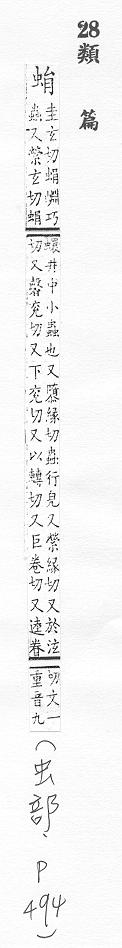 28
類篇
蜎
圭玄切蜎淵巧
蟲又縈玄切蜎
蠉井中小蟲也又隳緣切蟲行皃又縈緣切又於泫
切又馨兗切又下兗切又以轉切又巨卷切又逵眷
切文一
重音九
(虫部、P494)